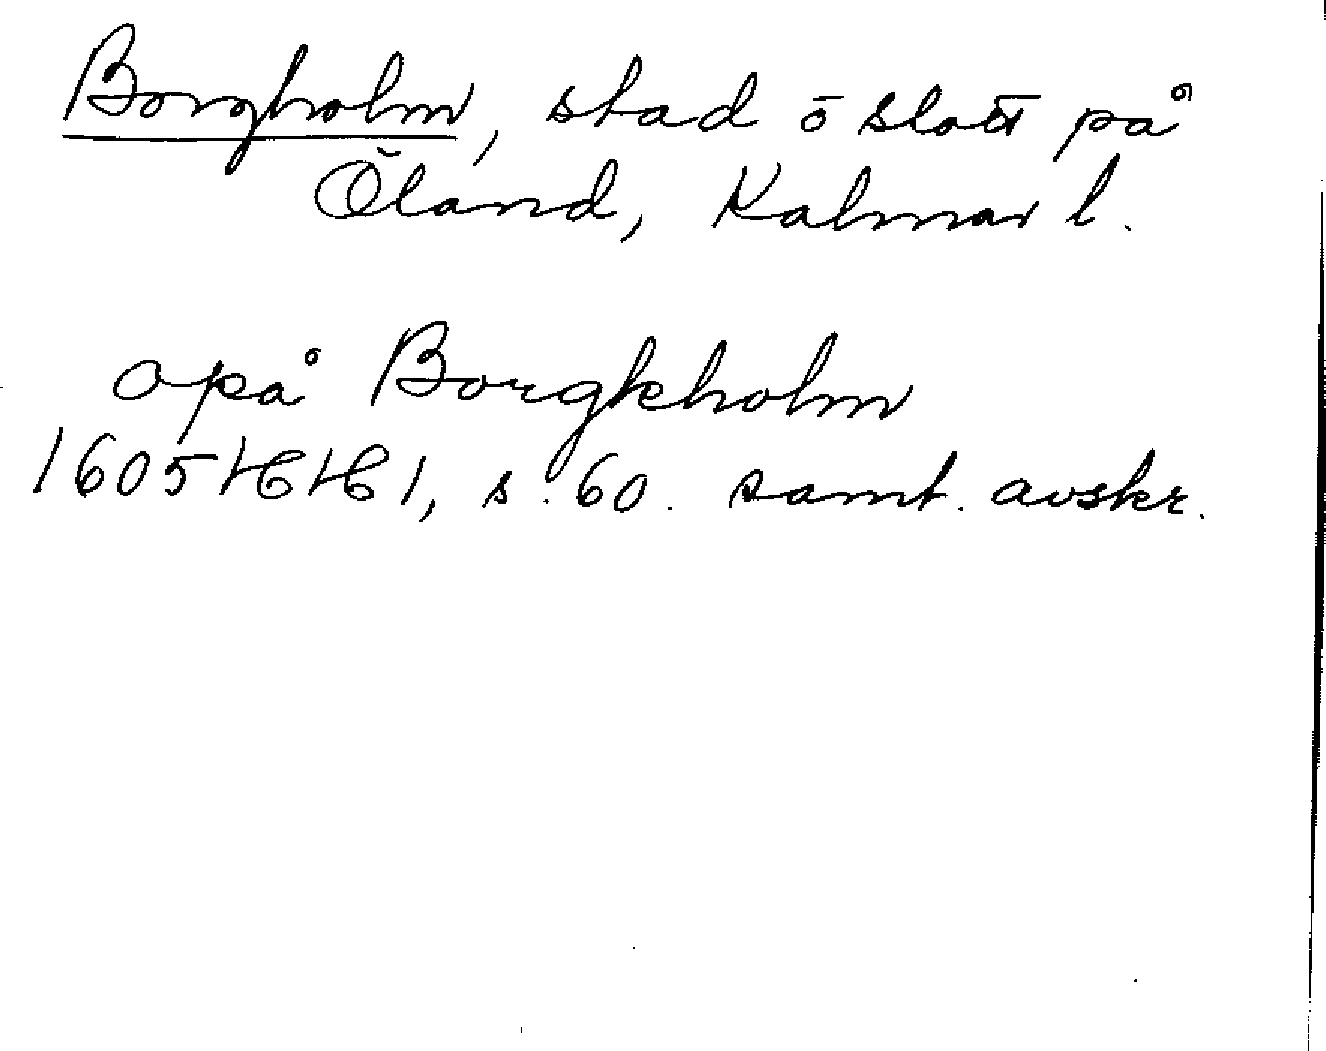 Borgholm, stad ō slott på
Öland, Kalmar l.
opå Borgkholm
1605 HH 1, s. 60. samt. avskr.